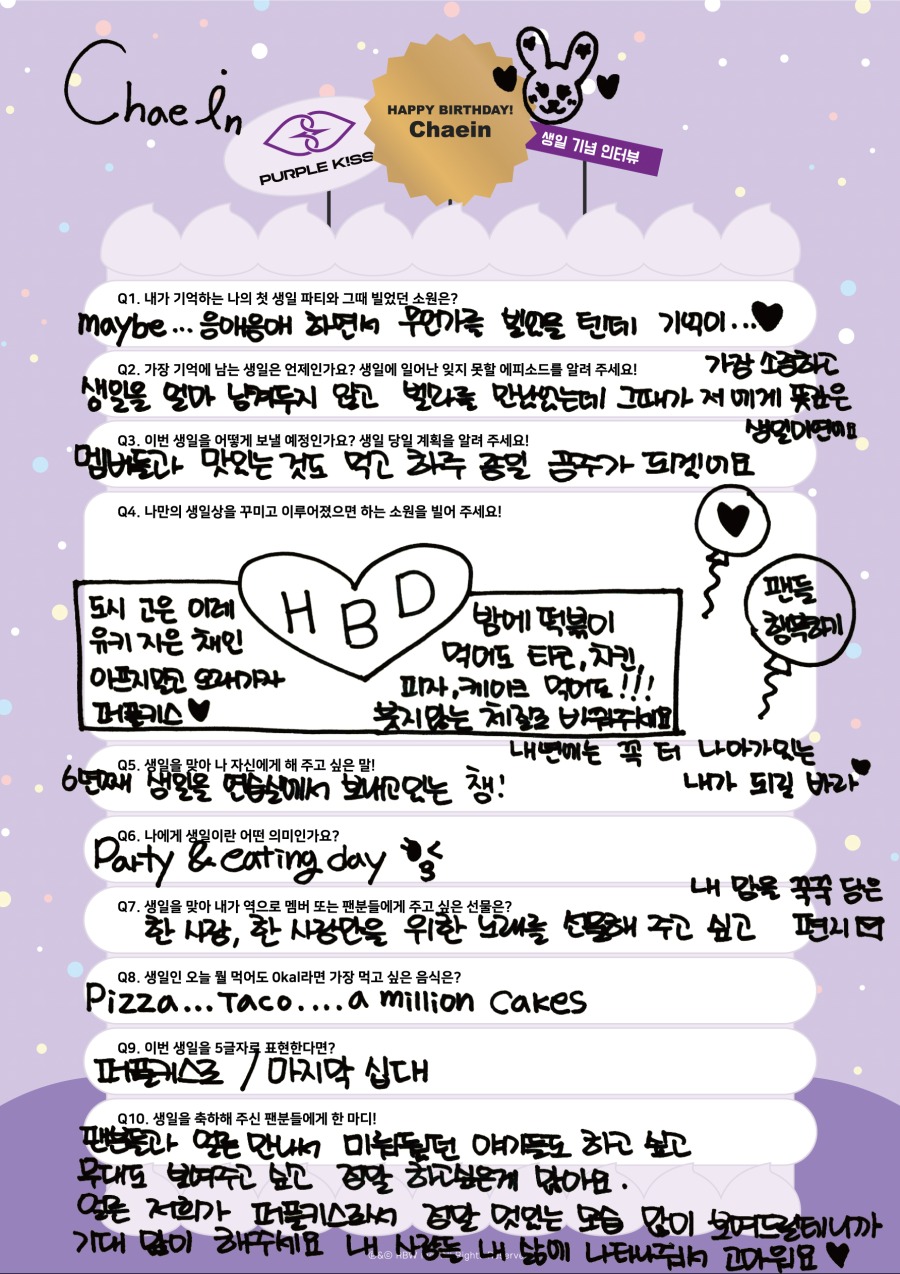 Chaein
PURPLE K!SS
HAPPY BIRTHDAY!
Chaein
생일 기념 인터뷰
Q1. 내가 기억하는 나의 첫 생일 파티와 그때 빌었던 소원은?
maybe... 응애응애 하면서 무언가를 빌었을 텐데 기억이...
Q2. 가장 기억에 남는 생일은 언제인가요? 생일에 일어난 잊지 못할 에피소드를 알려 주세요!
생일을 얼마 남겨두지 않고 벨라를 만났었는데 그때가 저에게 뜻깊은
가장 소중하고
생일이였어요
Q3. 이번 생일을 어떻게 보낼 예정인가요? 생일 당일 계획을 알려 주세요!
멤버들과 맛있는 것도 먹고 하루 종일 공주가 되겠어요
Q4. 나만의 생일상을 꾸미고 이루어졌으면 하는 소원을 빌어 주세요!
HBD
도시 고은 이레
유키 지은 채인
아프지말고 오래가자
퍼플키스
밤에 떡볶이
먹어도 타코, 치킨,
피자, 케이크 먹어도!!!
붓지않는 체질로 바꿔주세요
팬들
행복하기
Q5. 생일을 맞아 나 자신에게 해 주고 싶은 말!
6년째 생일을 연습실에서 보내고있는 챙!
내년에는 꼭 더 나아가있는
내가 되길 바라
Q6. 나에게 생일이란 어떤 의미인가요?
Party & eating day
Q7. 생일을 맞아 내가 역으로 멤버 또는 팬분들에게 주고 싶은 선물은?
한 사람, 한 사람만을 위한 노래를 선물해 주고 싶고
내 맘을 꾹꾹 담은
편지
Q8. 생일인 오늘 뭘 먹어도 0kal라면 가장 먹고 싶은 음식은?
Pizza... Taco.... a million cakes
Q9. 이번 생일을 5글자로 표현한다면?
퍼플키스로 / 마지막 십대
Q10. 생일을 축하해 주신 팬분들에게 한 마디!
팬분들과 얼른 만나서 미뤄뒀던 얘기들도 하고 싶고
무대도 보여주고 싶고 정말 하고싶은게 많아요.
얼른 저희가 퍼플키스라서 정말 멋있는 모습 많이 보여드릴테니까
기대 많이 해주세요 내 사랑들 내 삶에 나타나줘서 고마워요